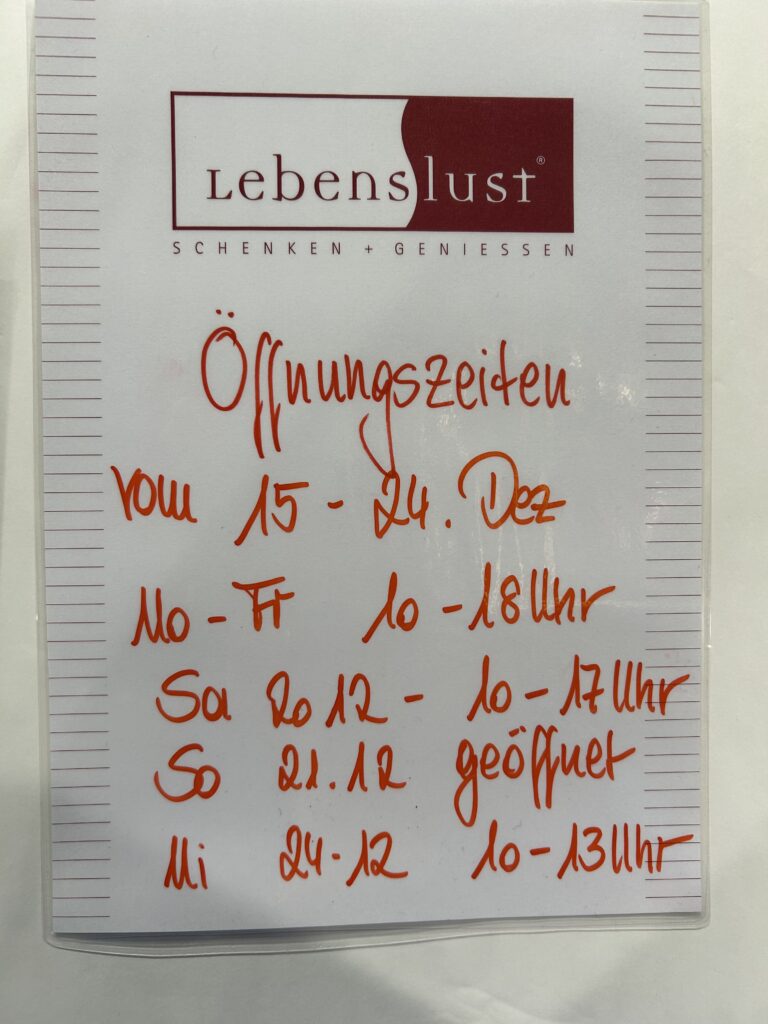 Lebenslust®
SCHENKEN + GENIESSEN
Öffnungszeiten
vom 15 - 24. Dez
Mo - Fr 10 - 18 Uhr
Sa 20 12 - 10 - 17 Uhr
So 21.12 geöffnet
Mi 24-12 10 - 13 Uhr